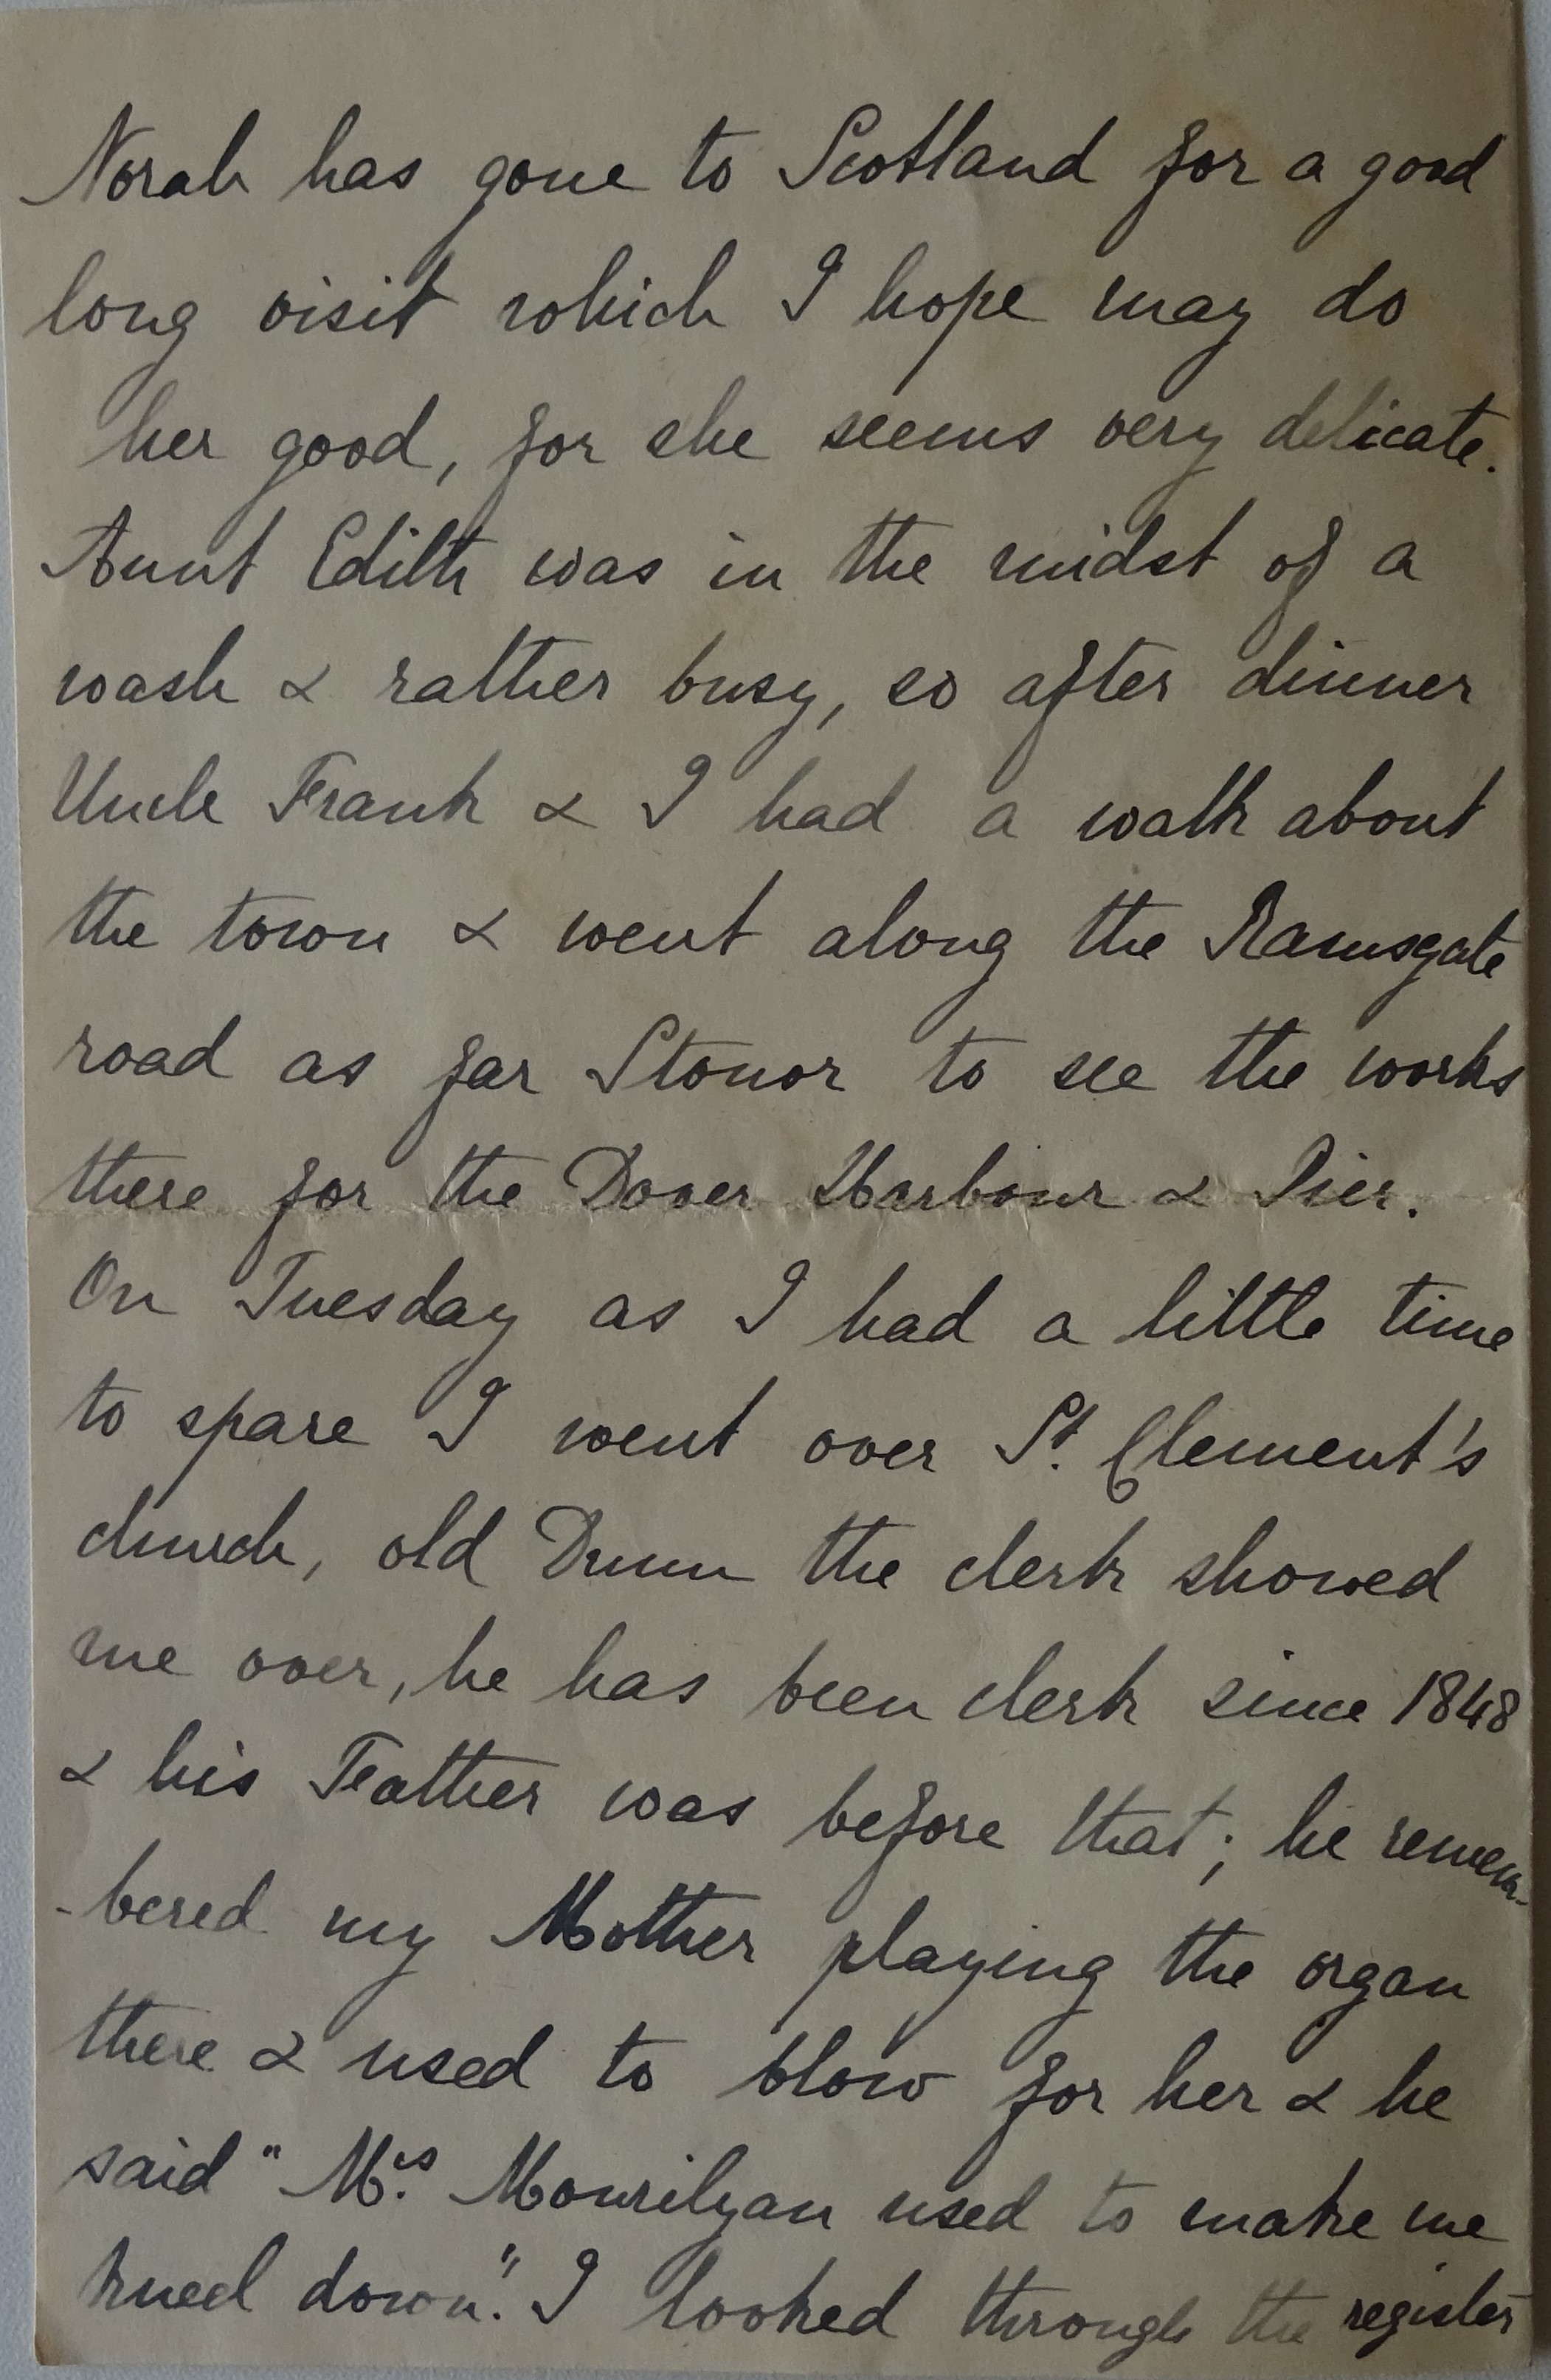 Norah has gone to Scotland for a good
long visit which I hope may do
her good, for she seems very delicate.
Aunt Edith was in the midst of a
wash & rather busy, so after dinner
Uncle Frank & I had a walk about
the town & went along the Ramsgate
road as far Stonor to see the works
there for the Dover Harbour & Pier.
On Tuesday as I had a little time
to spare I went over St. Clement's
church, old Dunn the clerk showed
me over, he has been clerk since 1848
& his Father was before that; he remem-
-bered my Mother playing the organ
there & used to blow for her & he
said "Mrs. Mourilyan used to make me
kneel down". I looked through the register